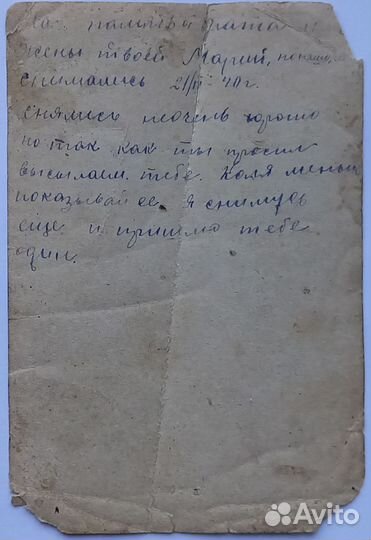 На память брата и
жены твоей Марии,
снимались 21/ -40 г.
снялись неочень хорошо
но так как ты просил
высылаем тебе. Коля меньш
показывай ее я снимусь
еще и пришлю тебе
один.
Avito